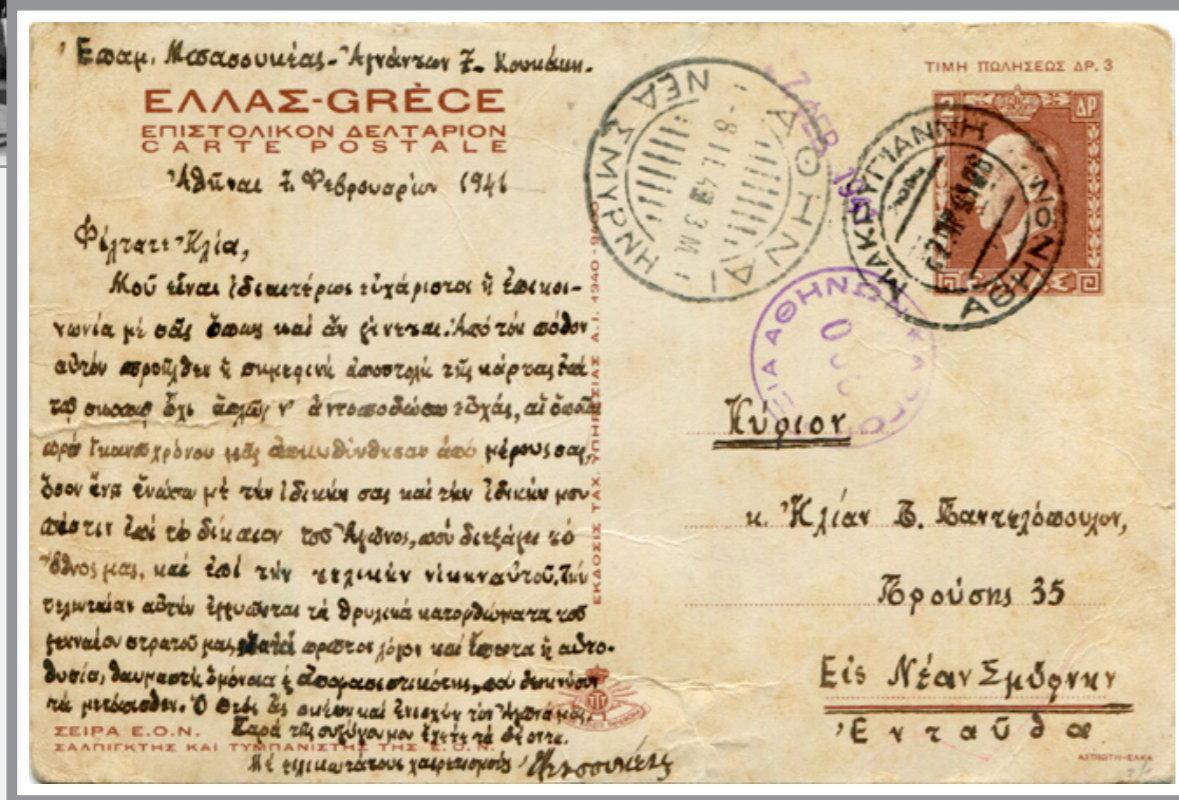 Ἐπαμ. Μπασουκέας - Ἀγνάντων 7 - Κουκάκι.
ΕΛΛΑΣ-GRÈCE
ΕΠΙΣΤΟΛΙΚΟΝ ΔΕΛΤΑΡΙΟΝ
CARTE POSTALE
Ἀθῆναι 7 Φεβρουαρίου 1941
Φίλτατε Ἠλία,
Μοῦ εἶναι ἰδιαιτέρως εὐχάριστος ἡ ἐπικοι-
νωνία μὲ σᾶς ὅπως καὶ ἂν γίνεται. Ἀπὸ τὸν πόθον
αὐτὸν προῆλθεν ἡ σημερινὴ ἀποστολὴ τῆς κάρτας ἐπὶ
τῷ σκοπῷ ὄχι ἁπλῶς ν' ἀνταποδώσω εὐχάς, αἱ ὁποῖαι
πρὸ ἱκανοῦ χρόνου μᾶς ἀπηυθύνθησαν ἀπὸ μέρους σας,
ὅσον ἵνα ἑνώσω μὲ τὴν ἰδικήν σας καὶ τὴν ἰδικήν μου
πίστιν ἐπὶ τὸ δίκαιον τοῦ Ἀγῶνος, ποὺ διεξάγει τὸ
Ἔθνος μας, καὶ ἐπὶ τὴν τελικὴν νίκην αὐτοῦ. Τὴν
τελευταίαν αὐτὴν ἐγγυῶνται τὰ θρυλικὰ κατορθώματα τοῦ
γενναίου στρατοῦ μας πρῶτον λόγον καὶ ἔπειτα ἡ αὐτο-
θυσία, θαυμαστὴ ὁμόνοια ἡ ἀποφασιστικότης, ποὺ δεικνύουν
τὰ μετόπισθεν. Ὁ Θεὸς ἂς σκέπῃ καὶ ἐνισχύῃ τὸν Ἀγῶνα μας.
Παρὰ τῆς συζύγου μου ἔχετε τὰ δέοντα.
Μὲ φιλικωτάτους χαιρετισμούς
ΣΕΙΡΑ Ε.Ο.Ν.
ΣΑΛΠΙΓΚΤΗΣ ΚΑΙ ΤΥΜΠΑΝΙΣΤΗΣ ΤΗΣ Ε.Ο.Ν.
ΕΚΔΟΣΙΣ ΤΑΧ. ΥΠΗΡΕΣΙΑΣ Α.Ι. 1940
ΤΙΜΗ ΠΩΛΗΣΕΩΣ ΔΡ. 3
2 ΔΡ
ΑΘΗΝΑΙ
ΝΕΑ ΣΜΥΡΝΗ
7 FEB 1941
ΜΑΚΡΥΓΙΑΝΝΗ
ΑΘΗΝΩΝ
Κύριον
κ. Ἠλίαν Π. Παντελόπουλον,
Προύσης 35
Εἰς Νέαν Σμύρνην
Ἐνταῦθα
ΑΣΠΙΩΤΗ-ΕΛΚΑ